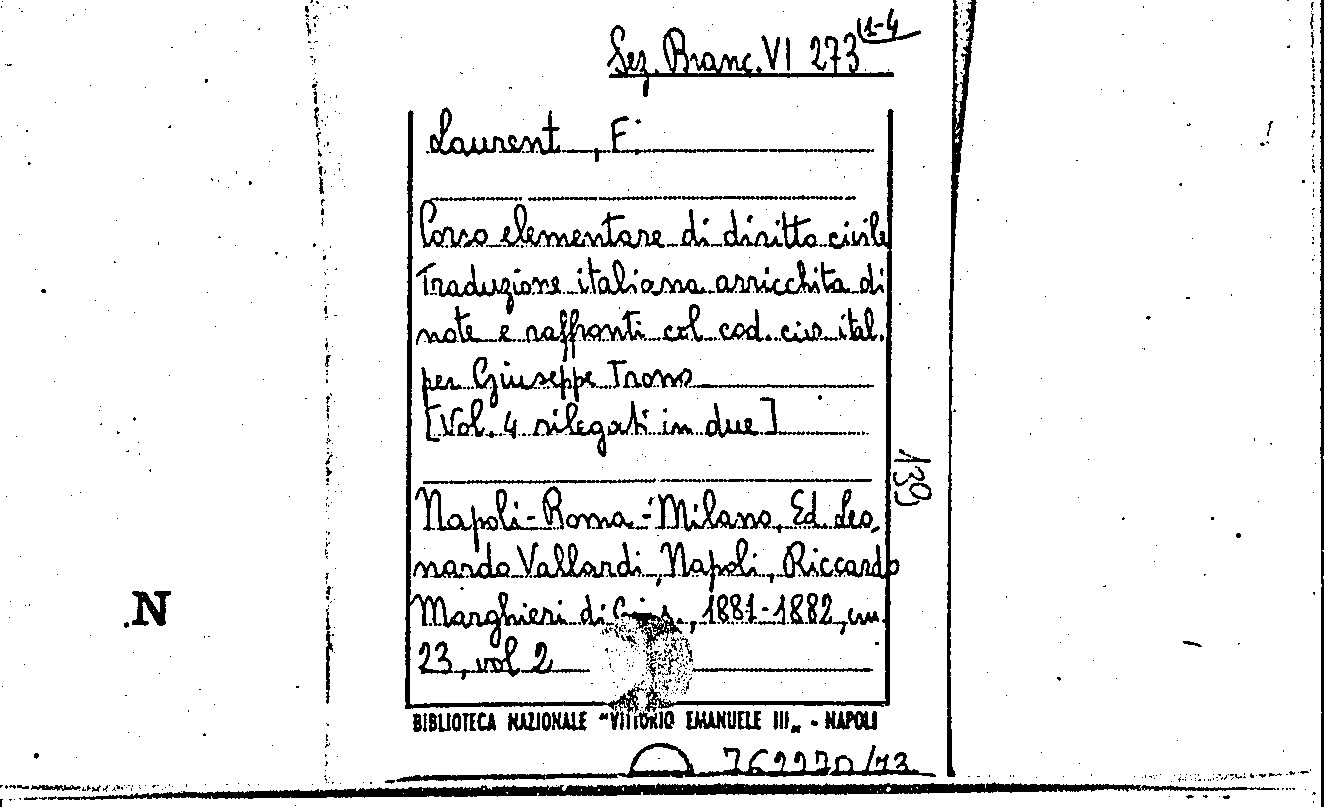 Sez. Branc. VI 273 1-4
Laurent, F.
Corso elementare di diritto civile
Traduzione italiana arricchita di
note e raffronti col cod. civ. ital.
per Giuseppe Trono
[Vol. 4 rilegati in due]
139
Napoli-Roma-Milano, Ed. Leo,
nardo Vallardi, Napoli, Riccardo
Marghieri di 1881-1882, cm.
23, vol 2
.N
BIBLIOTECA NAZIONALE "VITTORIO EMANUELE III„ - NAPOLI